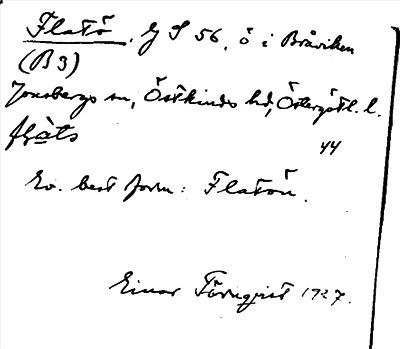 Flatö. G S 56, ö i Bråviken
(B 3)
Jonsbergs sn, Östkinds hd, Östergötl. l.
44
Ev. best form: Flatön.
Einar Törnqvist 1927.